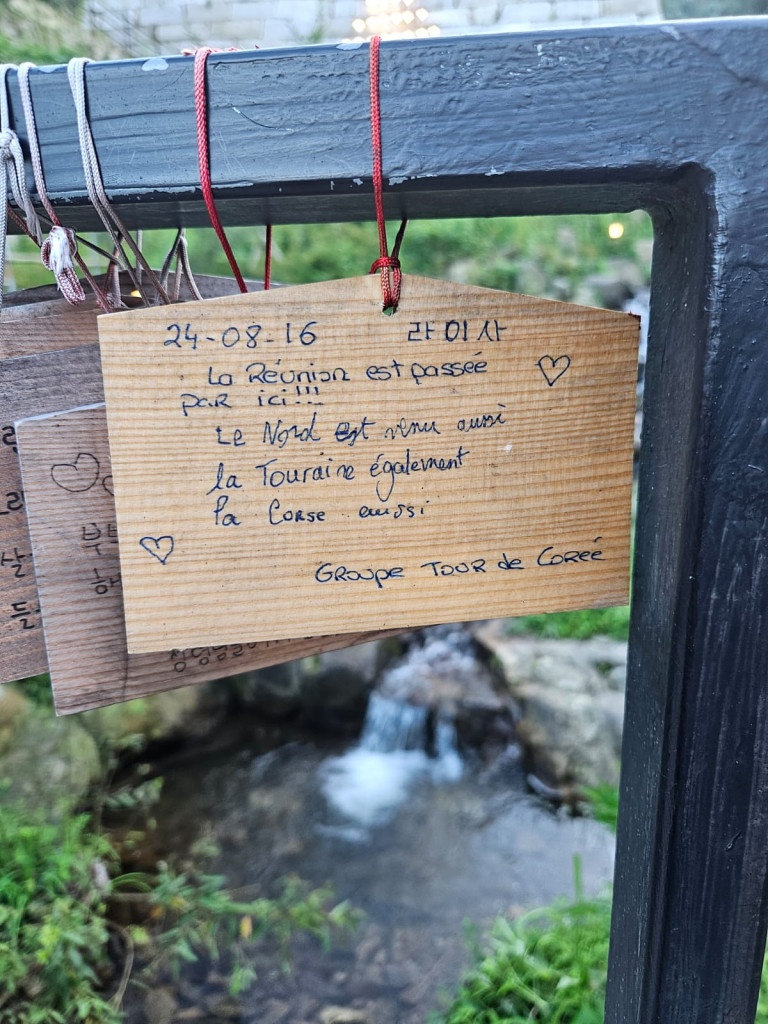 24-08-16 라이사
La Réunion est passée
par ici!!!
Le Nord est venu aussi
la Touraine également
la Corse aussi
Groupe Tour de Coréé
부
살
들